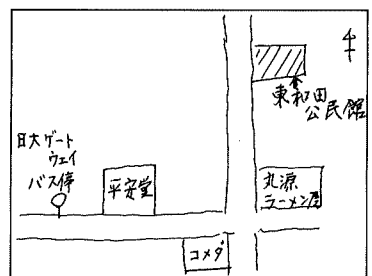 東和田
公民館
日大ゲート
ウェイ
バス停
平安堂
丸源
ラーメン屋
コメダ